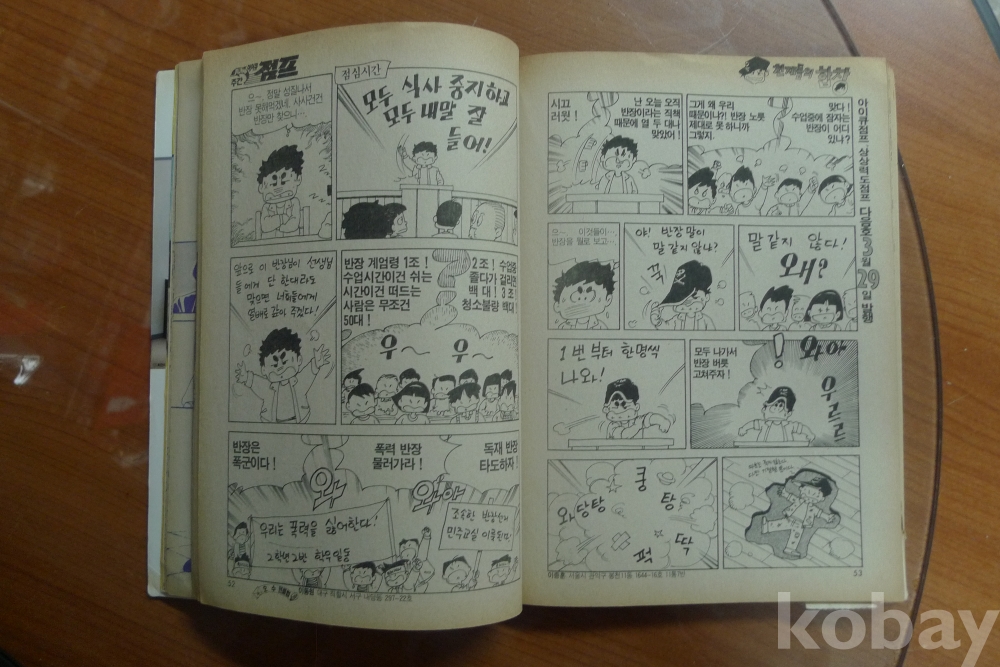 주간
점프
으~ 정말 성질나서
반장 못해먹겠네. 사사건건
반장만 찾으니…
점심시간
모두 식사 중지하고
모두 내말 잘
들어!
앞으로 이 반장님이 선생님
들에게 단 한대라도
맞으면 너희들에게
열배로 갚아 주겠다!
반장 계엄령 1조!
수업시간이건 쉬는
시간이건 떠드는
사람은 무조건
50대!
2조! 수업중
졸다가 걸리면
백 대! 3조!
청소불량 백대!
우~ 우~
반장은
폭군이다!
폭력 반장
물러가라!
독재 반장
타도하자!
와
와아
우리는 폭력을 싫어한다!
2학년 2반 학우 일동
조속한 반장선거
민주교실 이룩된다
52
대구 직할시 서구 내당동 297-22호
시끄
러워!
난 오늘 오직
반장이라는 직책
때문에 열 두 대나
맞았어!
그게 왜 우리
때문이냐?! 반장 노릇
제대로 못 하니까
그렇지.
맞다!
수업중에 잠자는
반장이 어디
있냐?
으… 이것들이…
반장을 뭘로 보고…
야! 반장 말이
말 같지 않냐?
꾹
말 같지 않다!
왜?
1번부터 한명씩
나와!
모두 나가서
반장 버릇
고쳐주자!
!
와아
우르르
와당탕
쿵
탕
퍽
딱
이종훈 서울시 관악구 봉천11동 1644-16호 11통7반
53
아이큐점프 상상력도점프 다음호 3월 29일 발행
kobay